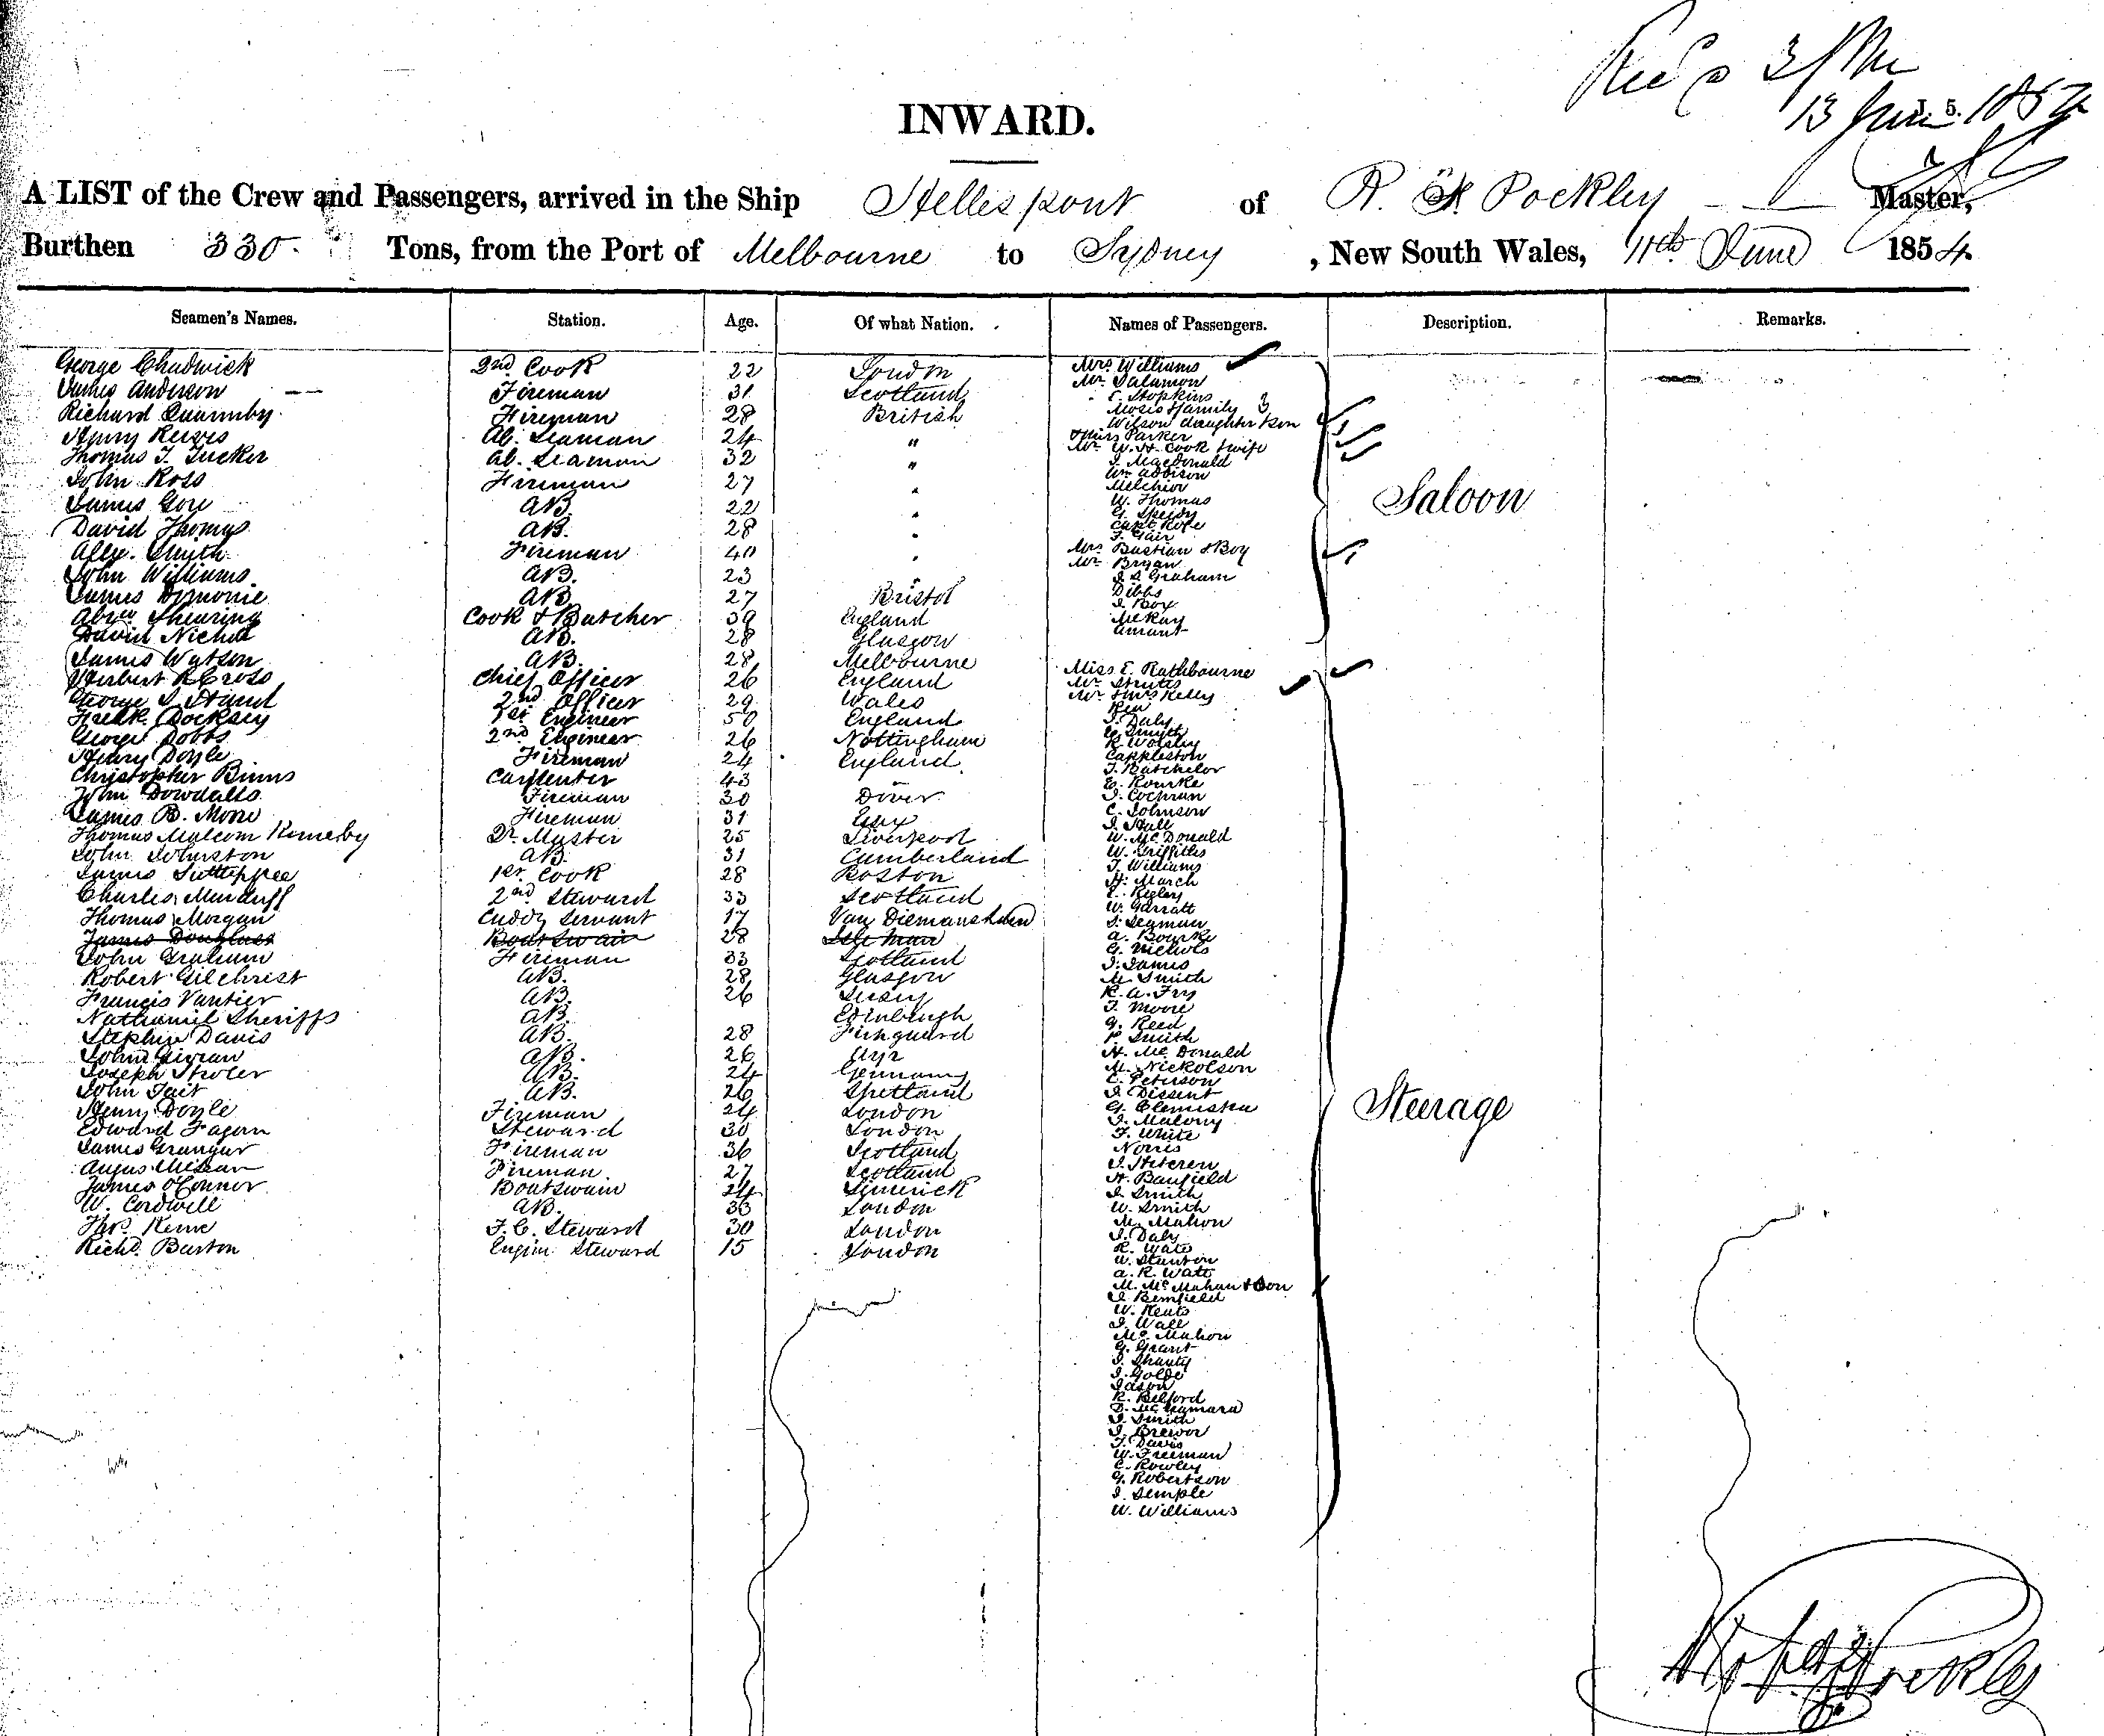 3 PM
13 June 1854
J. 5.
INWARD.
A LIST of the Crew and Passengers, arrived in the Ship Hellespont of R. F. Pockley Master,
Burthen 330 Tons, from the Port of Melbourne to Sydney, New South Wales, 11th June 1854
Seamen's Names. Station. Age. Of what Nation. Names of Passengers. Description. Remarks.
George Chadwick 2nd Cook 22 London Mrs Williams
James Anderson Fireman 31 Scotland Mr Salamon
Richard Quarmby Fireman 28 British Hopkins
Henry Reeves Ab. Seaman 24 " Moses & family 3
Thomas T. Tucker Ab. Seaman 32 " Wilson daughter & son
John Ross Fireman 27 " Miss Parker
James Gore AB. 22 " Mr W. H. Cook & wife
David Thomas AB. 28 " J. MacDonald
Alex. Smyth Fireman 40 " Wm Addison
John Williams AB. 23 " Melchior
James AB. 27 Bristol W. Thomas
Shearing Cook & Butcher 39 England G. Speidy
David Nichol AB. 28 Glasgow Capt. Rofe
James Watson AB. 28 Melbourne F. Gair
Herbert R Cross Chief Officer 26 England Mrs Bastian & Boy
George S. Hand 2nd Officer 29 Wales Mr Bryan
Fredk. Docksey 1st Engineer 50 England J. S. Graham
George Dobbs 2nd Engineer 26 Nottingham Dibbs
Henry Doyle Fireman 24 England J. Box
Christopher Binns Carpenter 43 McKay
John Dowdalls Fireman 30 Dover Amant
Saloon
James B. Moore Fireman 31 Miss E. Rathbourne
Thomas Malcom Romeby Qr. Master 25 Liverpool Mr Strutts
John Johnston AB. 31 Cumberland Mr & Mrs Kelly
James 1st Cook 28 Boston
Charles Murduff 2nd Steward 33 Scotland J. Daly
Thomas Morgan Cuddy Servant 17 Van Diemans Land Smyth
James Douglass Boatswain 28 Isle Man R. Wolsley
John Graham Fireman 33 Scotland Cappleston
Robert Gilchrist AB. 28 Glasgow T. Batchelor
Francis Vautier AB. 26 Jersey E. Rourke
Nathaniel Sheriffs AB. Edinburgh J. Cochran
Stephen Davis AB. 28 Fishguard C. Johnson
John AB. 26 Ayr J. Hall
Joseph AB. 24 Germany W. McDonald
John Tait AB. 26 Shetland W. Griffiths
Henry Doyle Fireman 24 London T. Williams
Edward Fagan Steward 30 London H. March
James Granger Fireman 36 Scotland E. Regley
Angus McLean Fireman 27 Scotland W. Garratt
James O'Connor Boatswain 24 Limerick J. Seaman
W. Cordwell AB. 36 London A. Bourke
Thos. Keene F. C. Steward 30 London G. Nichols
Richd. Burton Engin. Steward 15 London J. James
M. Smith
R. A. Fry
T. Moore
G. Reed
P. Smith
H. McDonald
M. Nickolson
C. Peterson
J. Dissent
G. Clemisha
J. Malony
F. White
Norris
J. Hiteren
H. Banfield
J. Smith
W. Smith
M. Mahon
J. Daly
R. Wate
W. Stanton
A. R. Watt
M. McMahan & Son
J. Benfield
W. Keats
J. Wall
McMahon
G. Grant
J. Shanty
J. Golde
Jason
R. Belford
D. McNamara
J. Smith
J. Brewer
T. Davis
W. Freeman
C. Rowley
G. Robertson
J. Semple
W. Williams
Steerage
Robt F Pockley